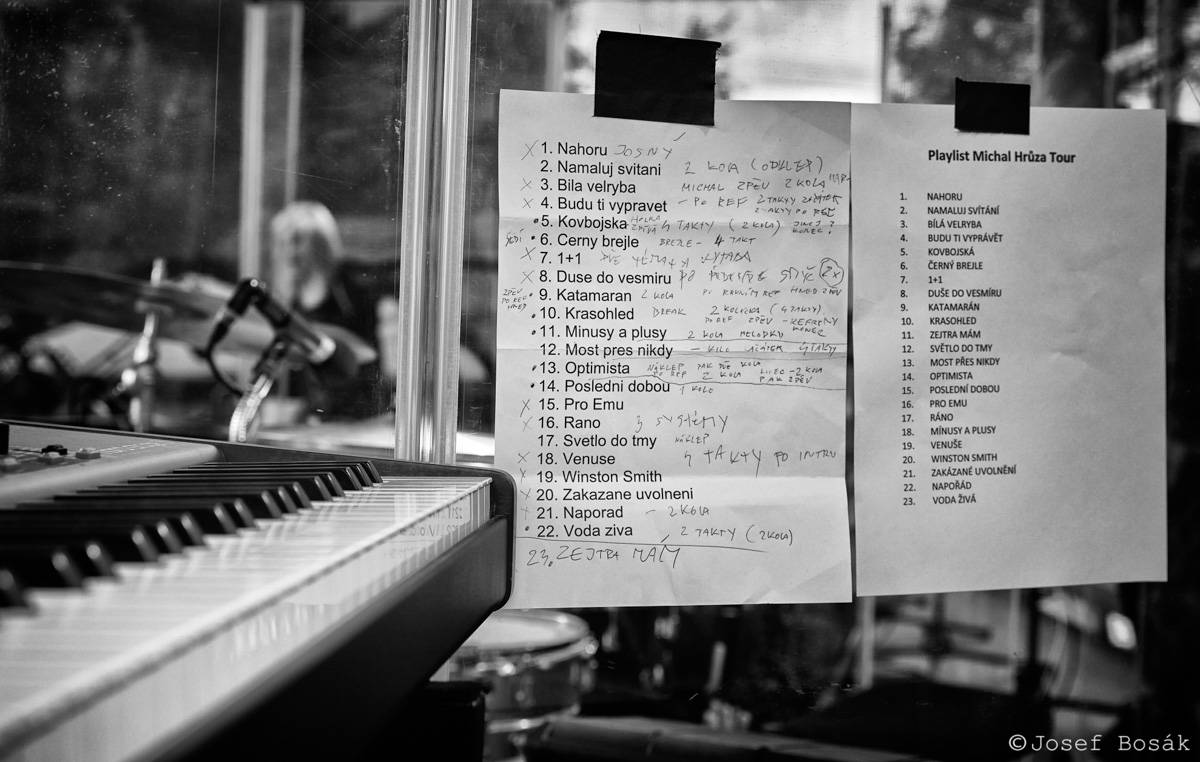 1. Nahoru JOSNÝ
2. Namaluj svitani 2 KOLA (ODKLEP)
3. Bila velryba MICHAL ZPĚV 2 KOLA
4. Budu ti vypravet - PO REF 2 TAKTY
2 TAKTY PO REF
5. Kovbojska 4 TAKTY (2 KOLA)
6. Cerny brejle BREJLE - 4 TAKT
7. 1+1
8. Duse do vesmiru PO 2x
9. Katamaran 2 KOLA PO PRVNÍM REF HNED ZPĚV
ZPĚV
PO REF
HNED
10. Krasohled BREAK 2 KOLEČKA (4 TAKTY)
PO REF ZPĚV - REFRÉNY
11. Minusy a plusy 2 KOLA MELODKY KONEC
12. Most pres nikdy 4 TAKTY
13. Optimista NÁKLEP KOLA
PO REF 2 KOLA PAK ZPĚV
14. Poslední dobou 1 KOLO
15. Pro Emu
16. Rano 3 SYSTÉMY
17. Svetlo do tmy NÁKLEP
18. Venuse 4 TAKTY PO INTRU
19. Winston Smith
20. Zakazane uvolneni
21. Naporad - 2 KOLA
22. Voda ziva 2 TAKTY (2 KOLA)
23. ZEJTRA MÁM
Playlist Michal Hrůza Tour
1. NAHORU
2. NAMALUJ SVÍTÁNÍ
3. BÍLÁ VELRYBA
4. BUDU TI VYPRÁVĚT
5. KOVBOJSKÁ
6. ČERNÝ BREJLE
7. 1+1
8. DUŠE DO VESMÍRU
9. KATAMARÁN
10. KRASOHLED
11. ZEJTRA MÁM
12. SVĚTLO DO TMY
13. MOST PŘES NIKDY
14. OPTIMISTA
15. POSLEDNÍ DOBOU
16. PRO EMU
17. RÁNO
18. MÍNUSY A PLUSY
19. VENUŠE
20. WINSTON SMITH
21. ZAKÁZANÉ UVOLNĚNÍ
22. NAPOŘÁD
23. VODA ŽIVÁ
©Josef Bosák